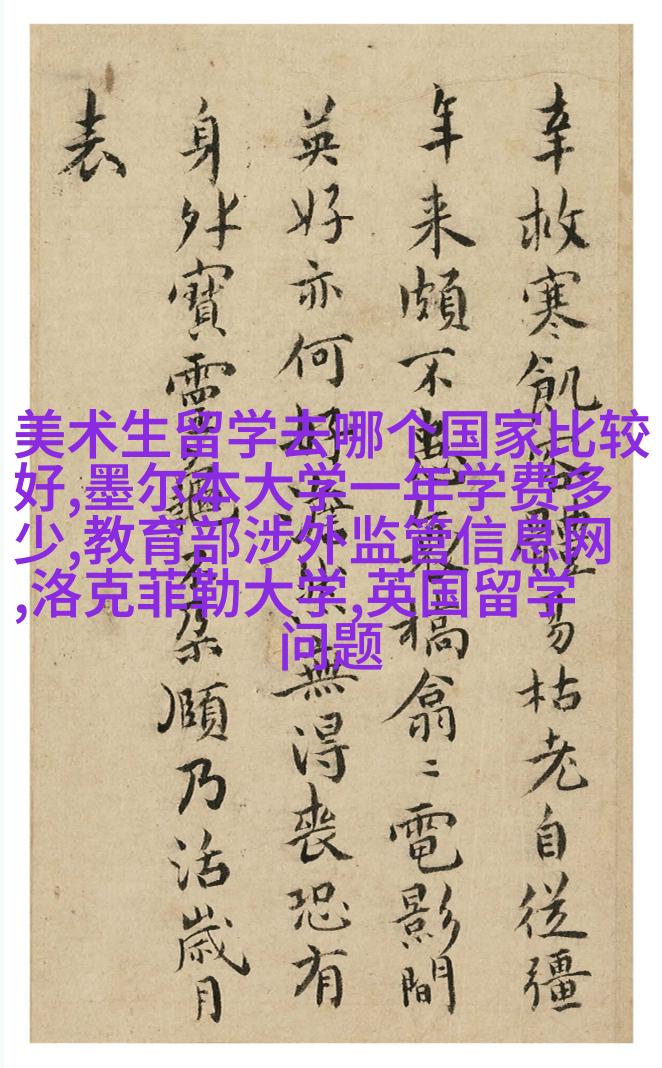 幸救寒飢體易枯老自従彊
年来頗不槁翕〻電影間
英好亦何無得喪恐有
身外寶靈龜不朶頤乃活歲月
表
美术生留学去哪个国家比较
好,墨尔本大学一年学费多
少,教育部涉外监管信息网
,洛克菲勒大学,英国留学
问题